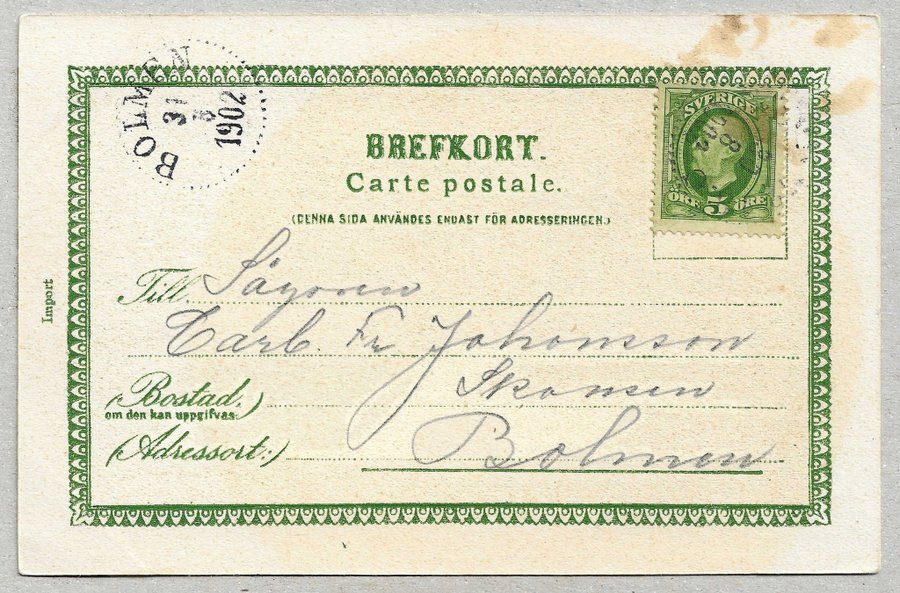 BOLMEN
31
8
1902
SVERIGE
5
ÖRE ÖRE
BREFKORT.
Carte postale.
(DENNA SIDA ANVÄNDES ENDAST FÖR ADRESSERINGEN.)
Import
Till
Carl. Fr Johansson
(Bostad,)
om den kan uppgifvas.
Skansen
(Adressort:)
Bolmen